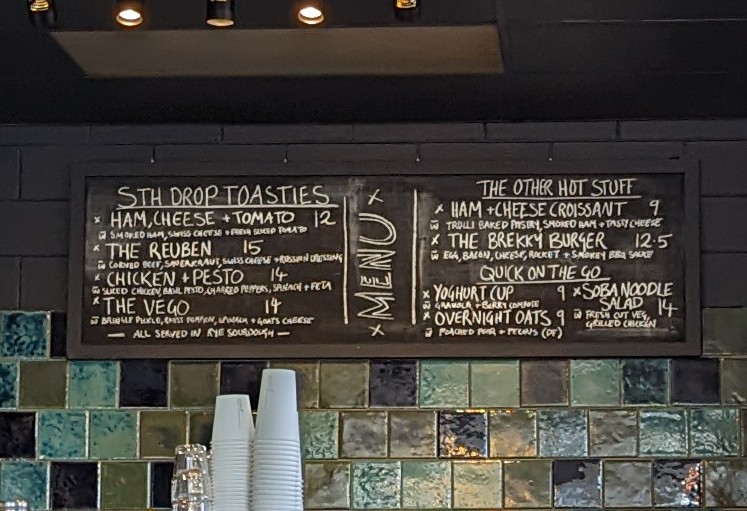 STH DROP TOASTIES
x HAM, CHEESE + TOMATO 12
W SMOKED HAM, SWISS CHEESE + FRESH SLICED TOMATO
x THE REUBEN 15
W CORNED BEEF, SAUERKRAUT, SWISS CHEESE + RUSSIAN DRESSING
x CHICKEN + PESTO 14
W SLICED CHICKEN, BASIL PESTO, CHARRED PEPPERS, SPINACH + FETA
x THE VEGO 14
W PICKLE, ROAST PUMPKIN, SPINACH + GOATS CHEESE
— ALL SERVED IN RYE SOURDOUGH —
x MENU x
THE OTHER HOT STUFF
x HAM + CHEESE CROISSANT 9
W TROLLI BAKED PASTRY, SMOKED HAM + TASTY CHEESE
x THE BREKKY BURGER 12.5
W EGG, BACON, CHEESE, ROCKET + SMOKEY BBQ SAUCE
QUICK ON THE GO
x YOGHURT CUP 9
W GRANOLA + BERRY COMPOTE
x OVERNIGHT OATS 9
W POACHED PEAR + PECANS (DF)
x SOBA NOODLE
SALAD 14
W FRESH CUT VEG,
GRILLED CHICKEN